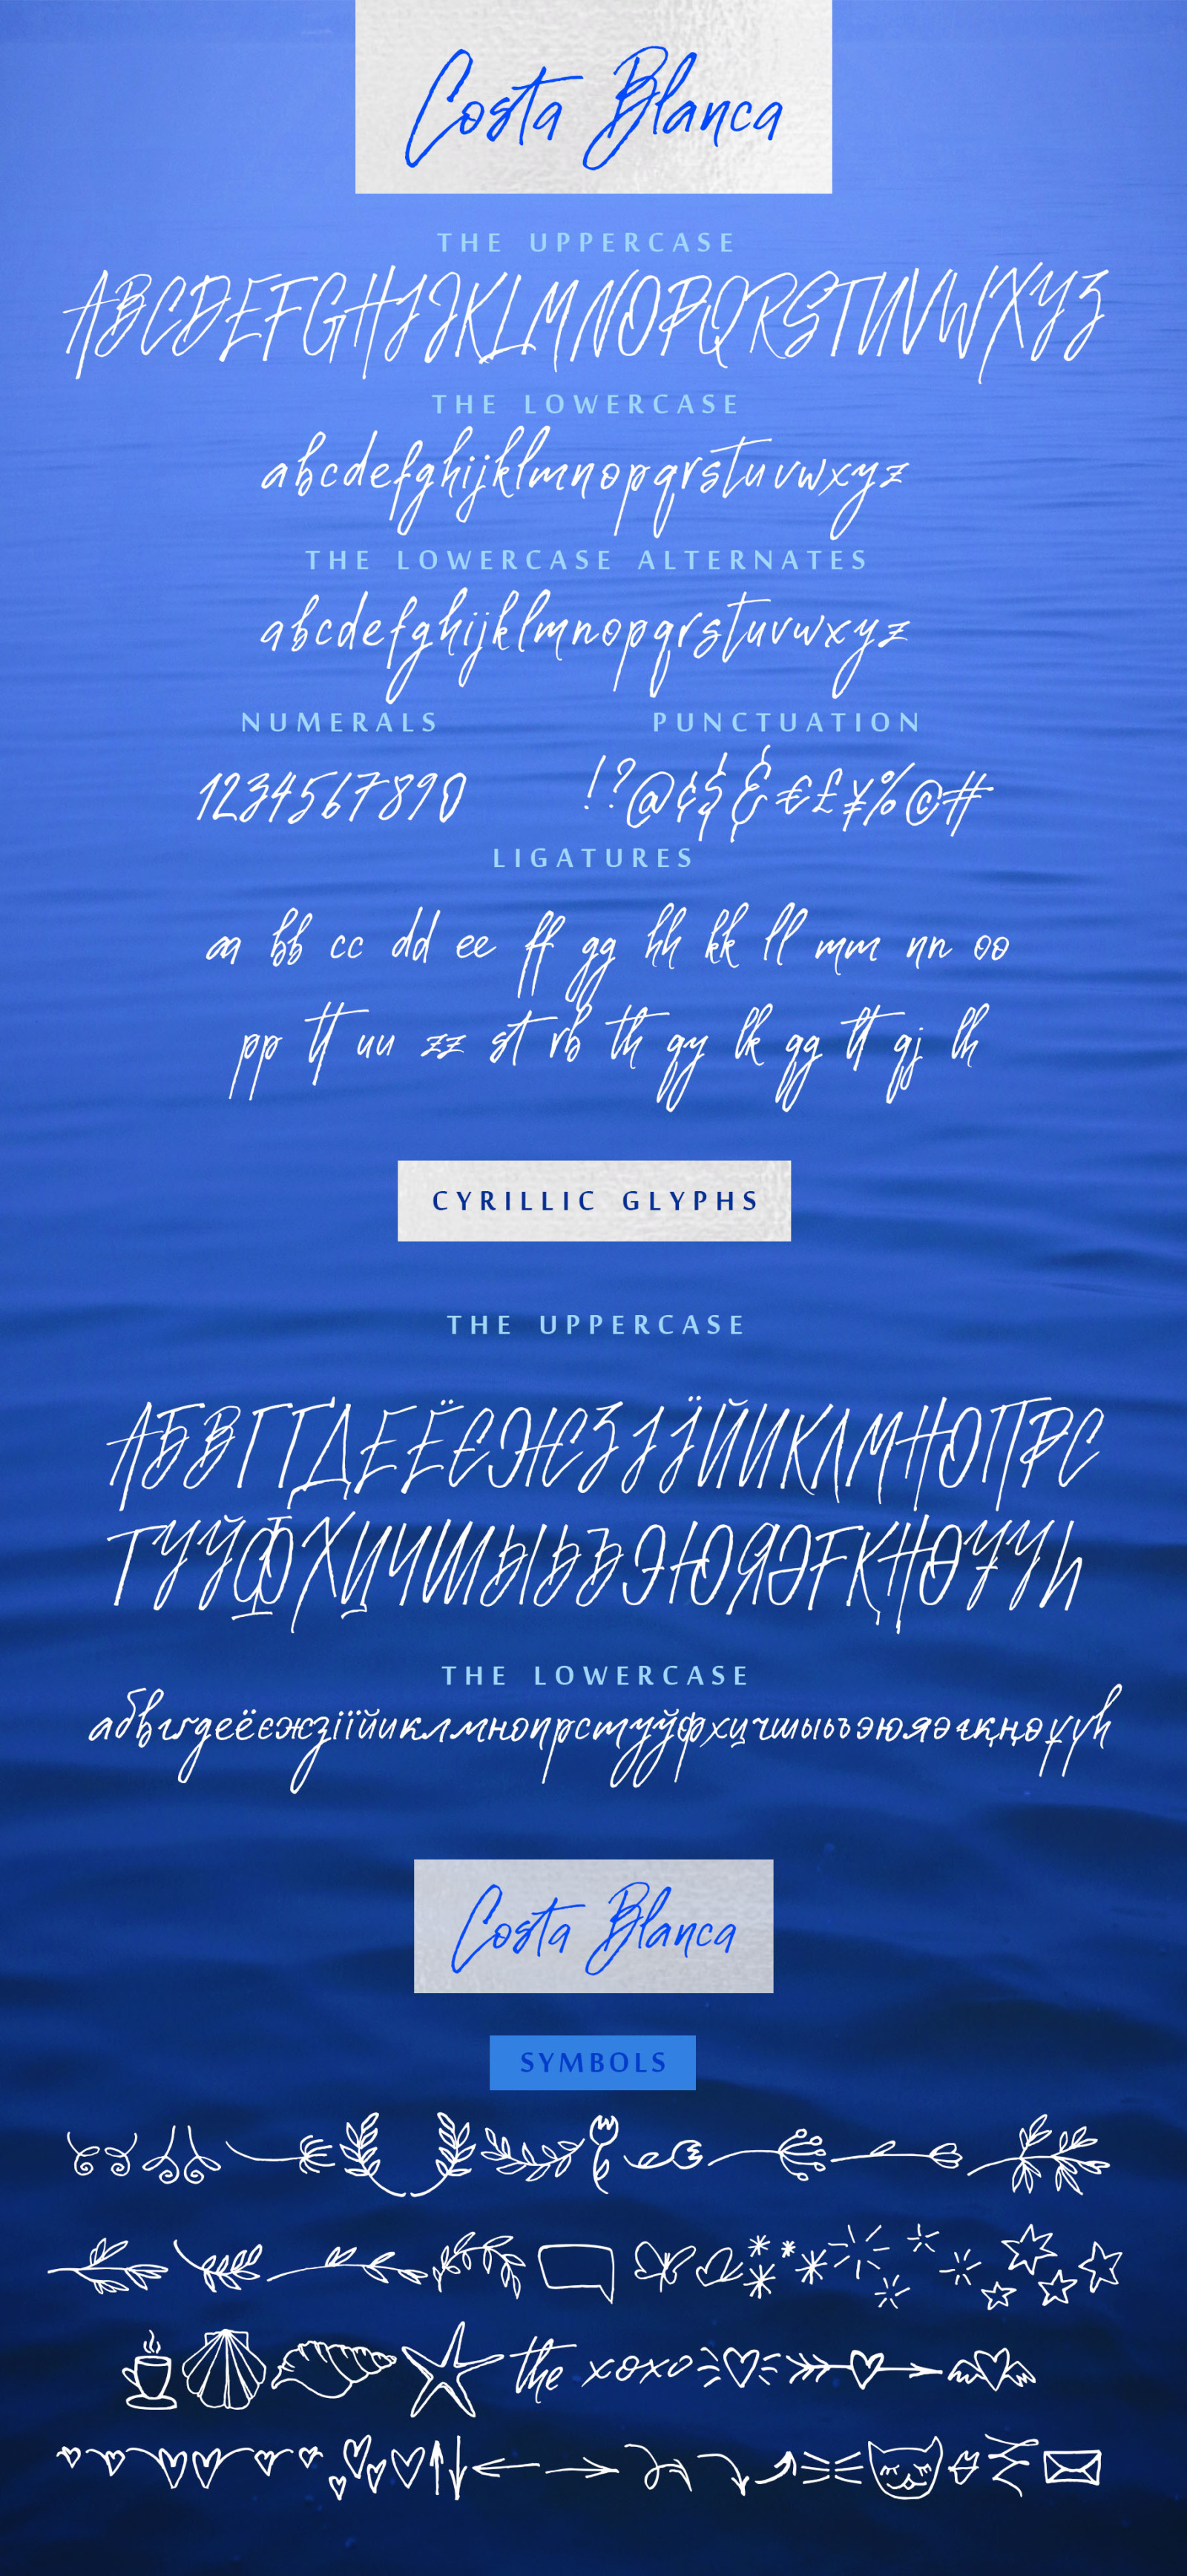 Costa Blanca
THE UPPERCASE
ABCDEFGHIJKLMNOPQRSTUVWXYZ
THE LOWERCASE
abcdefghijklmnopqrstuvwxyz
THE LOWERCASE ALTERNATES
abcdefghijklmnopqrstuvwxyz
NUMERALS PUNCTUATION
1234567890 !?@¢$&€£¥%©#
LIGATURES
aa bb cc dd ee ff gg hh kk ll mm nn oo
pp tt uu zz st rb th gy lk qg tt gj lh
CYRILLIC GLYPHS
THE UPPERCASE
АБВГҐДЕЁЄЖЗІЇЙИКЛМНОПРС
ТУЎФХЦЧШЫЬЪЭЮЯӘҒҚҢӨҰҮҺ
THE LOWERCASE
абвгґдеёєжзіїйиклмнопрстуўфхцчшыьъэюяәғқңөұүһ
Costa Blanca
SYMBOLS
the xoxo